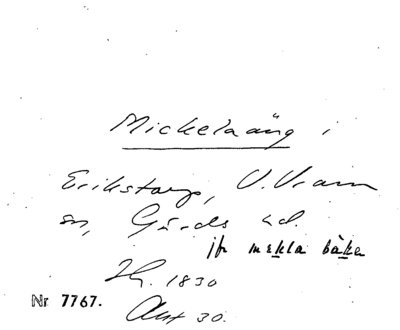 Mickelsäng i
Erikstorp, V. Vram
sn, Gärds hd.
jfr mekla bäka
1830
Nr 7767. Akt 30.